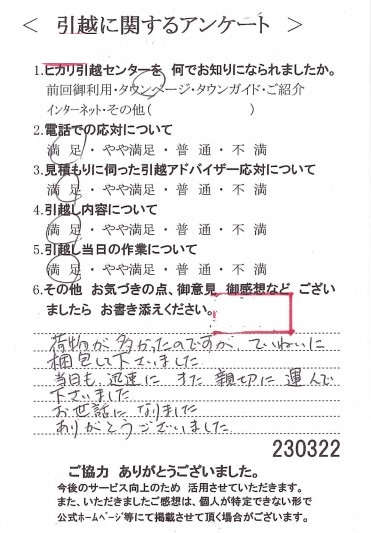 ＜ 引越に関するアンケート ＞
1.ヒカリ引越センターを 何でお知りになられましたか。
前回御利用・タウンページ・タウンガイド・ご紹介
インターネット・その他(　　　　　　　)
2.電話での応対について
満 足・やや満足・普 通・不 満
3.見積もりに伺った引越アドバイザー応対について
満 足・やや満足・普 通・不 満
4.引越し内容について
満 足・やや満足・普 通・不 満
5.引越し当日の作業について
満 足・やや満足・普 通・不 満
6.その他 お気づきの点、御意見 御感想など ござい
ましたら お書き添えください。
荷物が多かったのですが、ていねいに
梱包して下さいました
当日も、迅速に また 親切に 運んで
下さいました
お世話に なりました
ありがとうございました
230322
ご協力 ありがとうございました。
今後のサービス向上のため 活用させていただきます。
また、いただきましたご感想は、個人が特定できない形で
公式ホームページ等にて掲載させて頂く場合がございます。